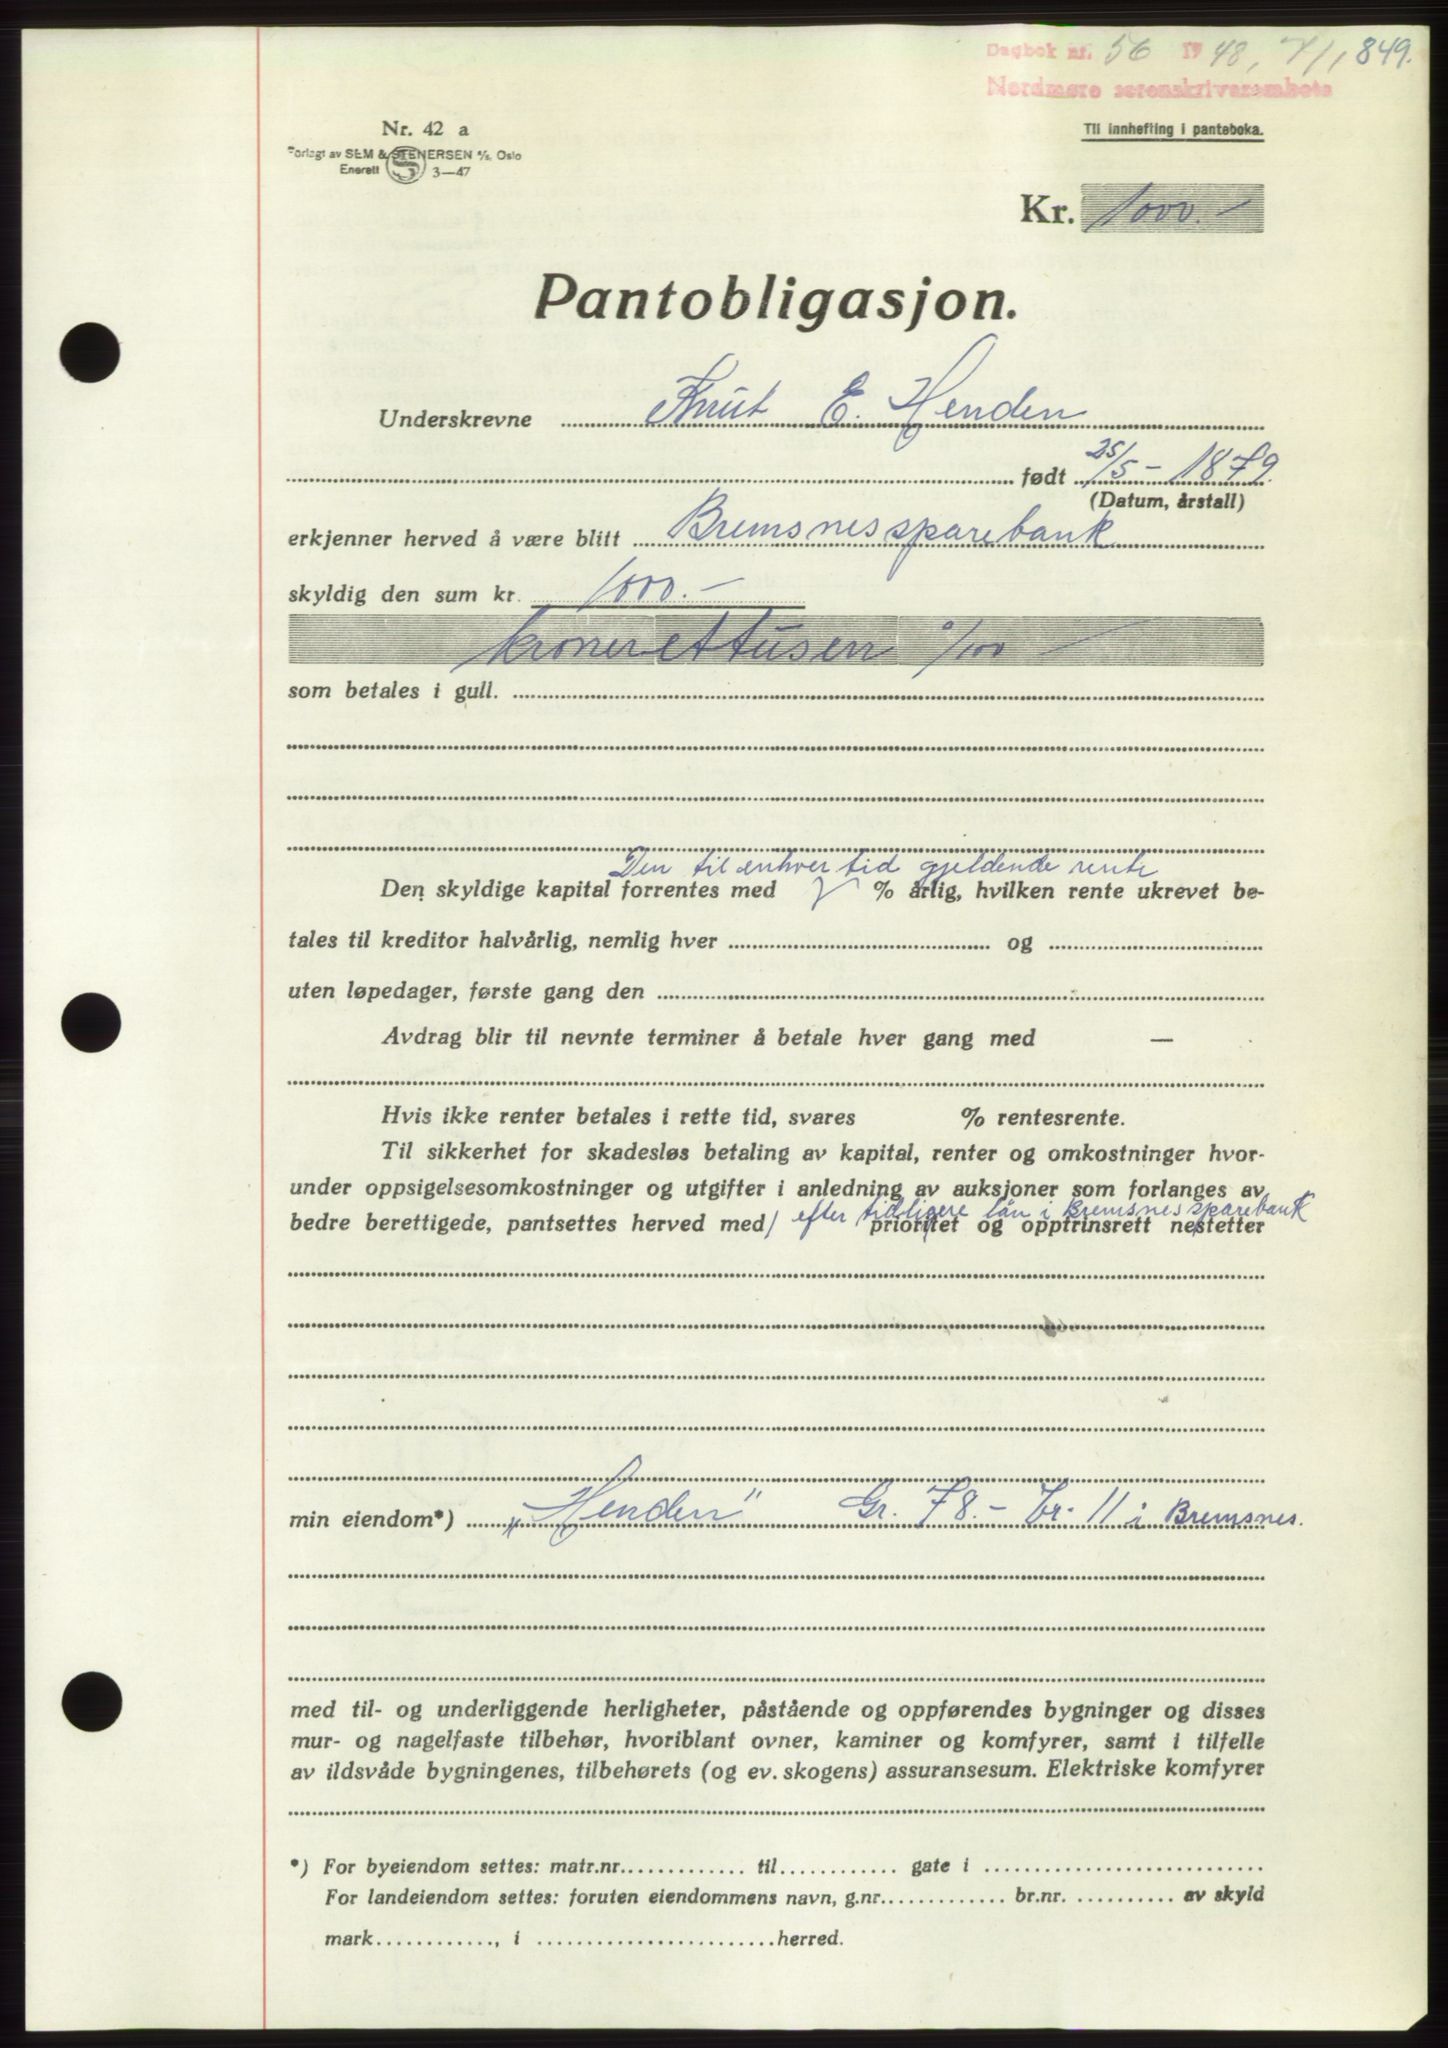 Dagbok nr. 56 1948, 7/1, 849.
Nordmøre sorenskriverembete
Nr. 42 a
Til innhefting i panteboka.
Forlagt av SEM & STENERSEN A/S, Oslo
Enerett S 3—47
Kr. 1000.-
Pantobligasjon.
Underskrevne Knut E. Henden
født 25/5 - 1879.
(Datum, årstall)
erkjenner herved å være blitt Bremsnes sparebank
skyldig den sum kr. 1000.-
kroner ettusen 0/100 —
som betales i gull.
Den til enhver tid gjeldende rente
Den skyldige kapital forrentes med √ % årlig, hvilken rente ukrevet be-
tales til kreditor halvårlig, nemlig hver og
uten løpedager, første gang den
Avdrag blir til nevnte terminer å betale hver gang med —
Hvis ikke renter betales i rette tid, svares % rentesrente.
Til sikkerhet for skadesløs betaling av kapital, renter og omkostninger hvor-
under oppsigelsesomkostninger og utgifter i anledning av auksjoner som forlanges av
efter tidligere lån i Bremsnes sparebank
bedre berettigede, pantsettes herved med prioritet og opptrinsrett nestetter
min eiendom*) „Henden" Gr. 78.- br. 11 i Bremsnes.
med til- og underliggende herligheter, påstående og oppførendes bygninger og disses
mur- og nagelfaste tilbehør, hvoriblant ovner, kaminer og komfyrer, samt i tilfelle
av ildsvåde bygningenes, tilbehørets (og ev. skogens) assuransesum. Elektriske komfyrer
*) For byeiendom settes: matr.nr. til gate i
For landeiendom settes: foruten eiendommens navn, g.nr. br.nr. av skyld
mark , i herred.